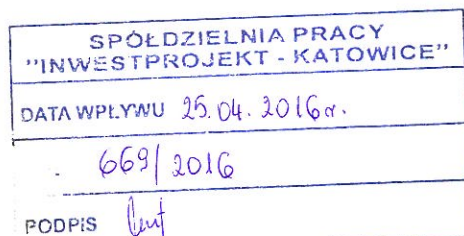 SPÓŁDZIELNIA PRACY
"INWESTPROJEKT - KATOWICE"
DATA WPŁYWU 25.04.2016r.
669/2016
PODPIS